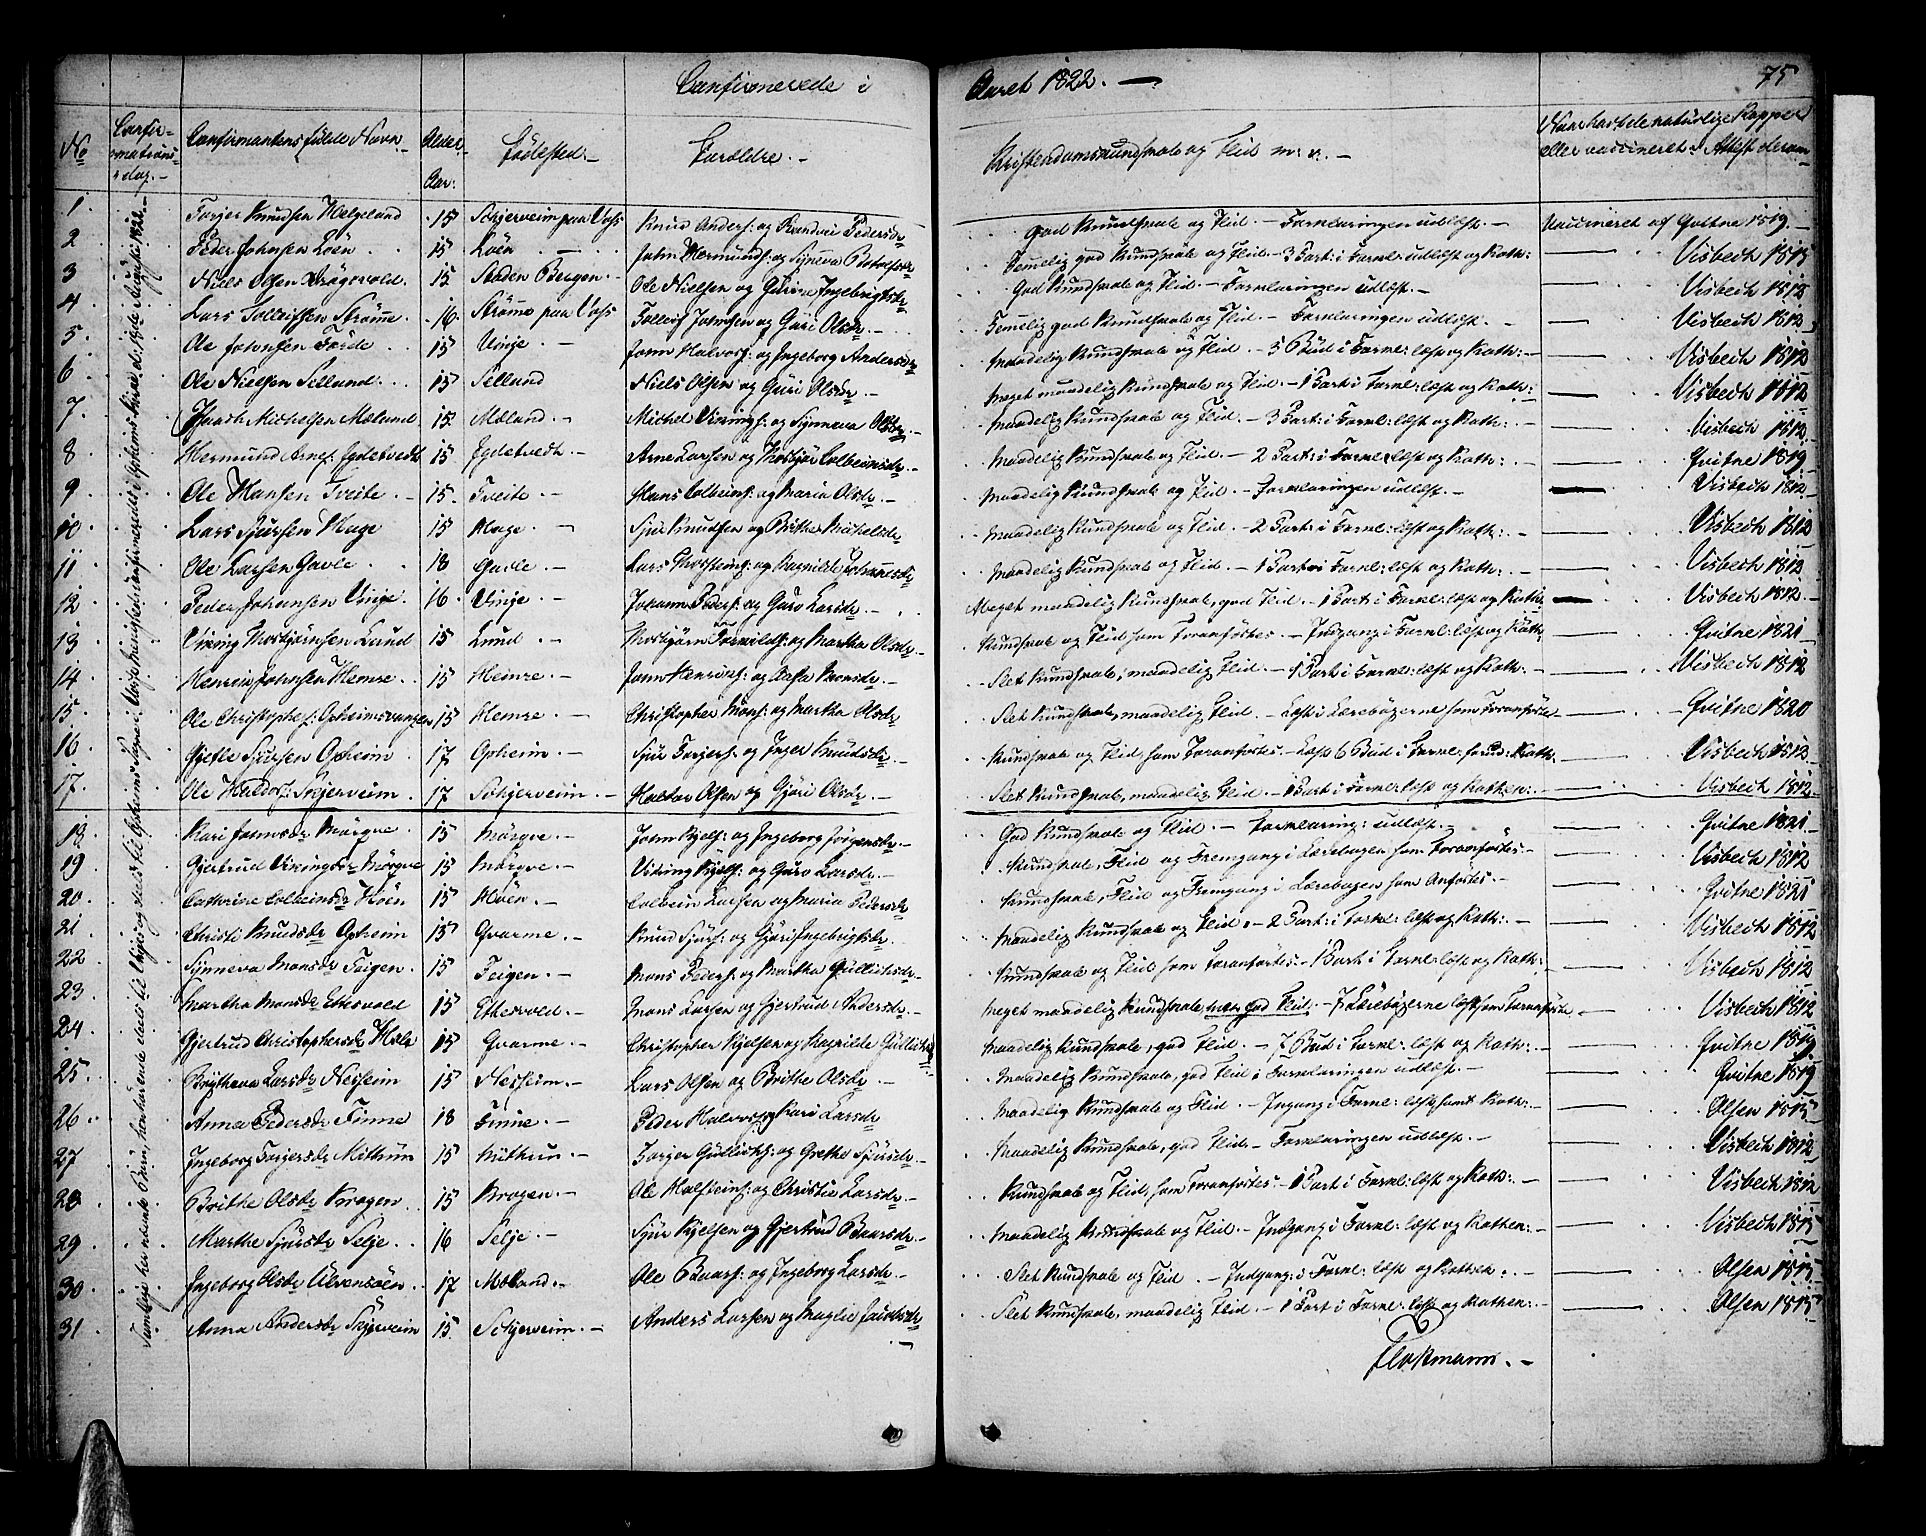 Confirmerede i Aaret 1822. — 75
No Confirmations dag. — Confirmantens fulde Navn. Alder Aar: Fødested. — Forældre. — Christendomskundskab og Flid m: v: — Naar havt de naturlige Kopper eller vaccineret, Attest derom —
1. Torjer Knudsen Helgeland 15 Schjerveim paa Voss Knud Anders: og Randvei Pedersdr God Kundskab og Flid. — Forklaringen udlæst. — Vaccineret af Qvitne 1819. —
2 Peder Johnsen Loën 15 Loën John Hermunds: og Synneva Botolfsdr Temmelig god Kundskab og Flid — 3 Part: i Forkl: udlæst og Kath: — Visbech 1815
3 Niels Olsen 15 Staden Bergen. Ole Nielsen og Gurine Ingebrigtsdr God Kundskab og Flid. — Forklaringen udlæst. — Visbech 1812
4 Lars Tolleifsen Strømme. 16 Strømme paa Voss Tolleif Johnsen og Guri Olsdr. — Temmelig god Kundskab og Flid. — Forklaringen udlæst. — Visbech 1812
5. Ole Johnsen Førde 15 Vinje. — John Halvors: og Ingeborg Andersdr Maadelig Kundskab og Flid. — 5 Bud i Forkl: læst og Kath: — Visbech 1812
6. Ole Nielsen Selland. 15 Selland Niels Olsen og Guri Olsdr. — Meget maadelig Kundskab og Flid. — 1 Part i Forkl: læst og Kath: — Visbech 1812
7. Jacob Michelsen Møland 15. Møland. — Michel Vikings: og Synneva Olsdr. — Maadelig Kundskab og Flid. — 3 Part: i Forkl: læst og Kath: — Visbech 1812.
8. Hermund Arnes: Egdetvedt 15 Egdetvedt. — Arne Larsen og Thorbjør Colbeinsdr. Maadelig Kundskab og Flid. — 2 Part: i Forkl: læst og Kath: — Qvitne 1819
9. Ole Hansen Tveite. — 15. Tveite. — Hans Colbeins: og Maria Olsdr. — Maadelig Kundskab og Flid. — Forklaringen udlæst. — Visbech 1812
10. Lars Sjursen Hage 15 Hage. — Sjur Knudsen og Brithe Michelsdr Maadelig Kundskab og Flid. — 2 Part: i Forkl: læst og Kath: — Visbech 1813
11. Ole Larsen Gavle. 18 Gavle — Lars Thorsteins: og Ragnilde Johannesdr Maadelig Kundskab og Flid — 1 Part i Forkl: læst og Kath: — Visbech 1813
12. Peder Johansen Vinje. 16. Vinje. — Johann Peders: og Guro Larsdr — Meget maadelig Kundskab, god Flid. — 1 Part: i Forkl: læst og Kath: Visbech 1812.
13. Viking Thorbjørnsen Lund 15 Lund. — Thorbjørn Torkilds: og Martha Olsdr. — Kundskab og Flid som Foranførtes. — Indgang i Forkl: læst og Kath: Qvitne 1821
14. Henrik Johnsen Hemre. 15 Hemre. — John Henriks: og Aase Monsdr. — Slet Kundskab, maadelig Flid. — 1 Part i Forkl: læst og Kath: — Visbech 1812
15. Ole Christophes: Opheimsvangen 15 Hemre. — Christopher Mons: og Martha Olsdr Slet Kundskab, maadelig Flid. — Læst i Lærebøgerne som Foranførte Qvitne 1820
16. Sjursen Opheim 17 Opheim. — Sjur Torjers: og Inger Knudsdr. Kundskab og Flid, som Foranførtes. — Læst 6 Bud i Forkl: Kath: Visbech 1813
17. Ole Haldors: Skjerveim. 17 Schjerveim. — Haldor Olsen og Gjøri Olsdr. — Slet Kundskab, maadelig Flid. — 1 Part i Forkl: læst og Kathen: — Visbech 1812.
18. Kari Johnsdr Mørqve 15 Mørqve. — John Kjels: og Ingeborg Jørgensdr. — God Kundskab og Flid. — Forklaring: udlæst. — Qvitne 1821
19. Gjertrud Vikingsdr Mørqve 15 Mørqve. — Viking Kjels: og Guro Larsdr. — Kundskab, Flid og Fremgang i Lærebogen som Foranførtes — Visbech 1812
20. Cathrine Colbeinsdr Høën 15 Høën. — Colbein Larsen og Maria Pedersdr Kundskab, Flid og Fremgang i Lærebogen som Anførtes. — Qvitne 1821
21. Christi Knudsdr Opheim 15 Qvarme. — Knud Sjurs: og Gjøri Ingebrigtsdr. Maadelig Kundskab og Flid. — 2 Part: i Forkl: læst og Kath: — Visbech 1812
22. Synneva Monsdr Feigen. 15 Feigen. — Mons Peders: og Martha Gulliksdr. Kundskab og Flid som Foranførtes. — 1 Part i Forkl: læst og Kath: Visbech 1812
23. Martha Monsdr Ettesvold 15 Ettesvold. — Mons Larsen og Gjertrud Andersdr. — Meget maadelig Kundskab, men god Flid. — I Lærebøgerne læst som Foranførte. Visbech 1812
24. Gjertrud Christophersdr 15 Qvarme. — Christopher Kjelsen og Ragnilde Maadelig Kundskab, god Flid. — 7 Bud i Forkl: læst og Kath: — Qvitne 1819
25. Brytheva Larsdr Nesheim 15 Nesheim. — Lars Olsen og Brithe Olsdr. — Maadelig Kundskab, god Flid. — Forklaringen udlæst. — Qvitne 1819
26. Anna Pedersdr Finne 18 Finne. — Peder Halvors: og Kari Larsdr Maadelig Kundskab og Flid. — Ingang i Forkl: læst, samt Kath: — Olsen 1815
27 Ingeborg Torgersdr Mithun 15 Mithun. — Torger Gulliks: og Grethe Sjursdr. — Maadelig Kundskab, god Flid. — Forklaringen udlæst. — Visbech 1812
28 Brithe Olsdr Kragen. 15 Kragen. — Ole Halsteins: og Christie Larsdr. — Kundskab og Flid, som Foranførtes. — 1 Part i Forkl: læst og Kath: — Visbech 1812
29. Marthe Sjursdr Selje. 16 Selje. — Sjur Kjelsen og Gjertrud Baarsdr. — Maadelig Kundskab og Flid. — Indgang i Forkl: læst og Kathen: — Visbech 1815
30. Ingeborg Olsdr Ulvensøën. 17 Møland. — Ole Baars: og Ingeborg Larsdr. — Slet Kundskab og Flid. — Indgang: i Forkl: læst og Kathen: — Olsen 1815
31. Anna Andersdr Skjerveim 15. Schjerveim. — Anders Larsen og Maglie Jacobsdr — Slet Kundskab, maadelig Flid. — 1 Part i Forkl: læst og Kathen: — Olsen 1815